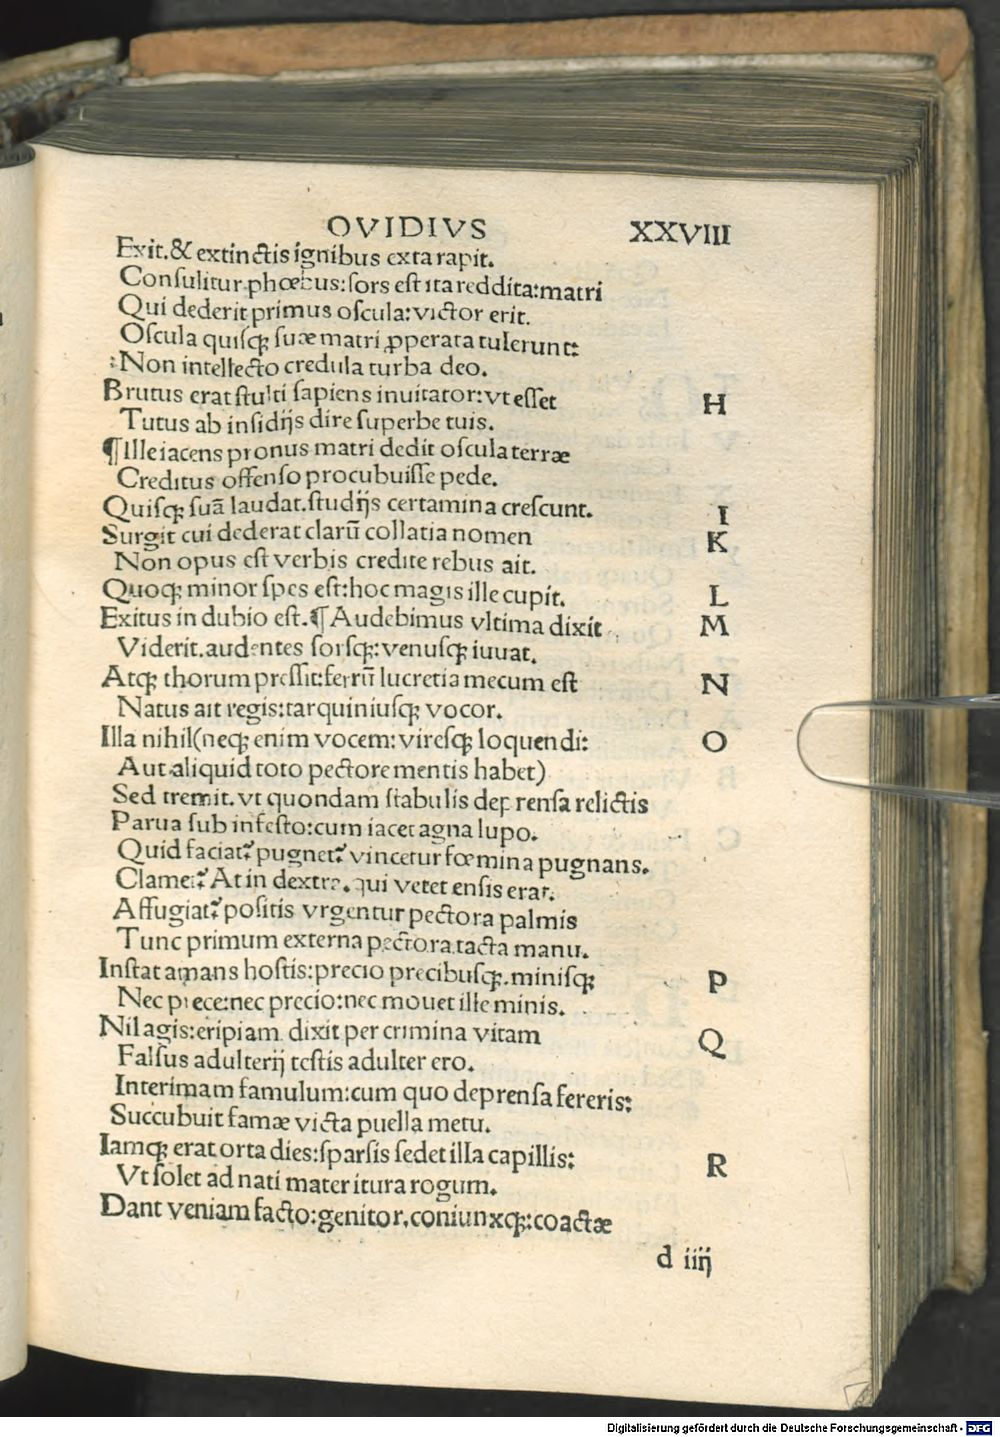 OVIDIVS XXVIII
Exit.& extinctis ignibus exta rapit.
Consulitur phœbus:sors est ita reddita:matri
Qui dederit primus oscula:victor erit.
Oscula quisqꝫ suæ matri ꝓperata tulerunt:
:Non intellecto credula turba deo.
Brutus erat stulti sapiens inuitator:vt esset H
Tutus ab insidijs dire superbe tuis.
¶Ille iacens pronus matri dedit oscula terræ
Creditus offenso procubuisse pede.
Quisqꝫ suā laudat.studijs certamina crescunt. I
Surgit cui dederat clarū collatia nomen K
Non opus est verbis credite rebus ait.
Quoqꝫ minor spes est:hoc magis ille cupit. L
Exitus in dubio est.¶Audebimus vltima dixit M
Viderit.audentes forsqꝫ:venusqꝫ iuuat.
Atqꝫ thorum pressit:ferrū lucretia mecum est N
Natus ait regis:tarquiniusqꝫ vocor.
Illa nihil(neqꝫ enim vocem:viresqꝫ loquendi: O
Aut aliquid toto pectore mentis habet)
Sed tremit.vt quondam stabulis deprensa relictis
Parua sub infesto:cum iacet agna lupo.
Quid faciat?pugnet?vincetur fœmina pugnans.
Clamet?At in dextra.qui vetet ensis erat.
Affugiat?positis vrgentur pectora palmis
Tunc primum externa pectora tacta manu.
Instat amans hostis:precio precibusqꝫ.minisqꝫ P
Nec prece:nec precio:nec mouet ille minis.
Nil agis:eripiam dixit per crimina vitam Q
Falsus adulterij testis adulter ero.
Interimam famulum:cum quo deprensa fereris:
Succubuit famæ victa puella metu.
Iamqꝫ erat orta dies:sparsis sedet illa capillis: R
Vt solet ad nati mater itura rogum.
Dant veniam facto:genitor.coniunxqꝫ:coactæ
d iiij
Digitalisierung gefördert durch die Deutsche Forschungsgemeinschaft - DFG